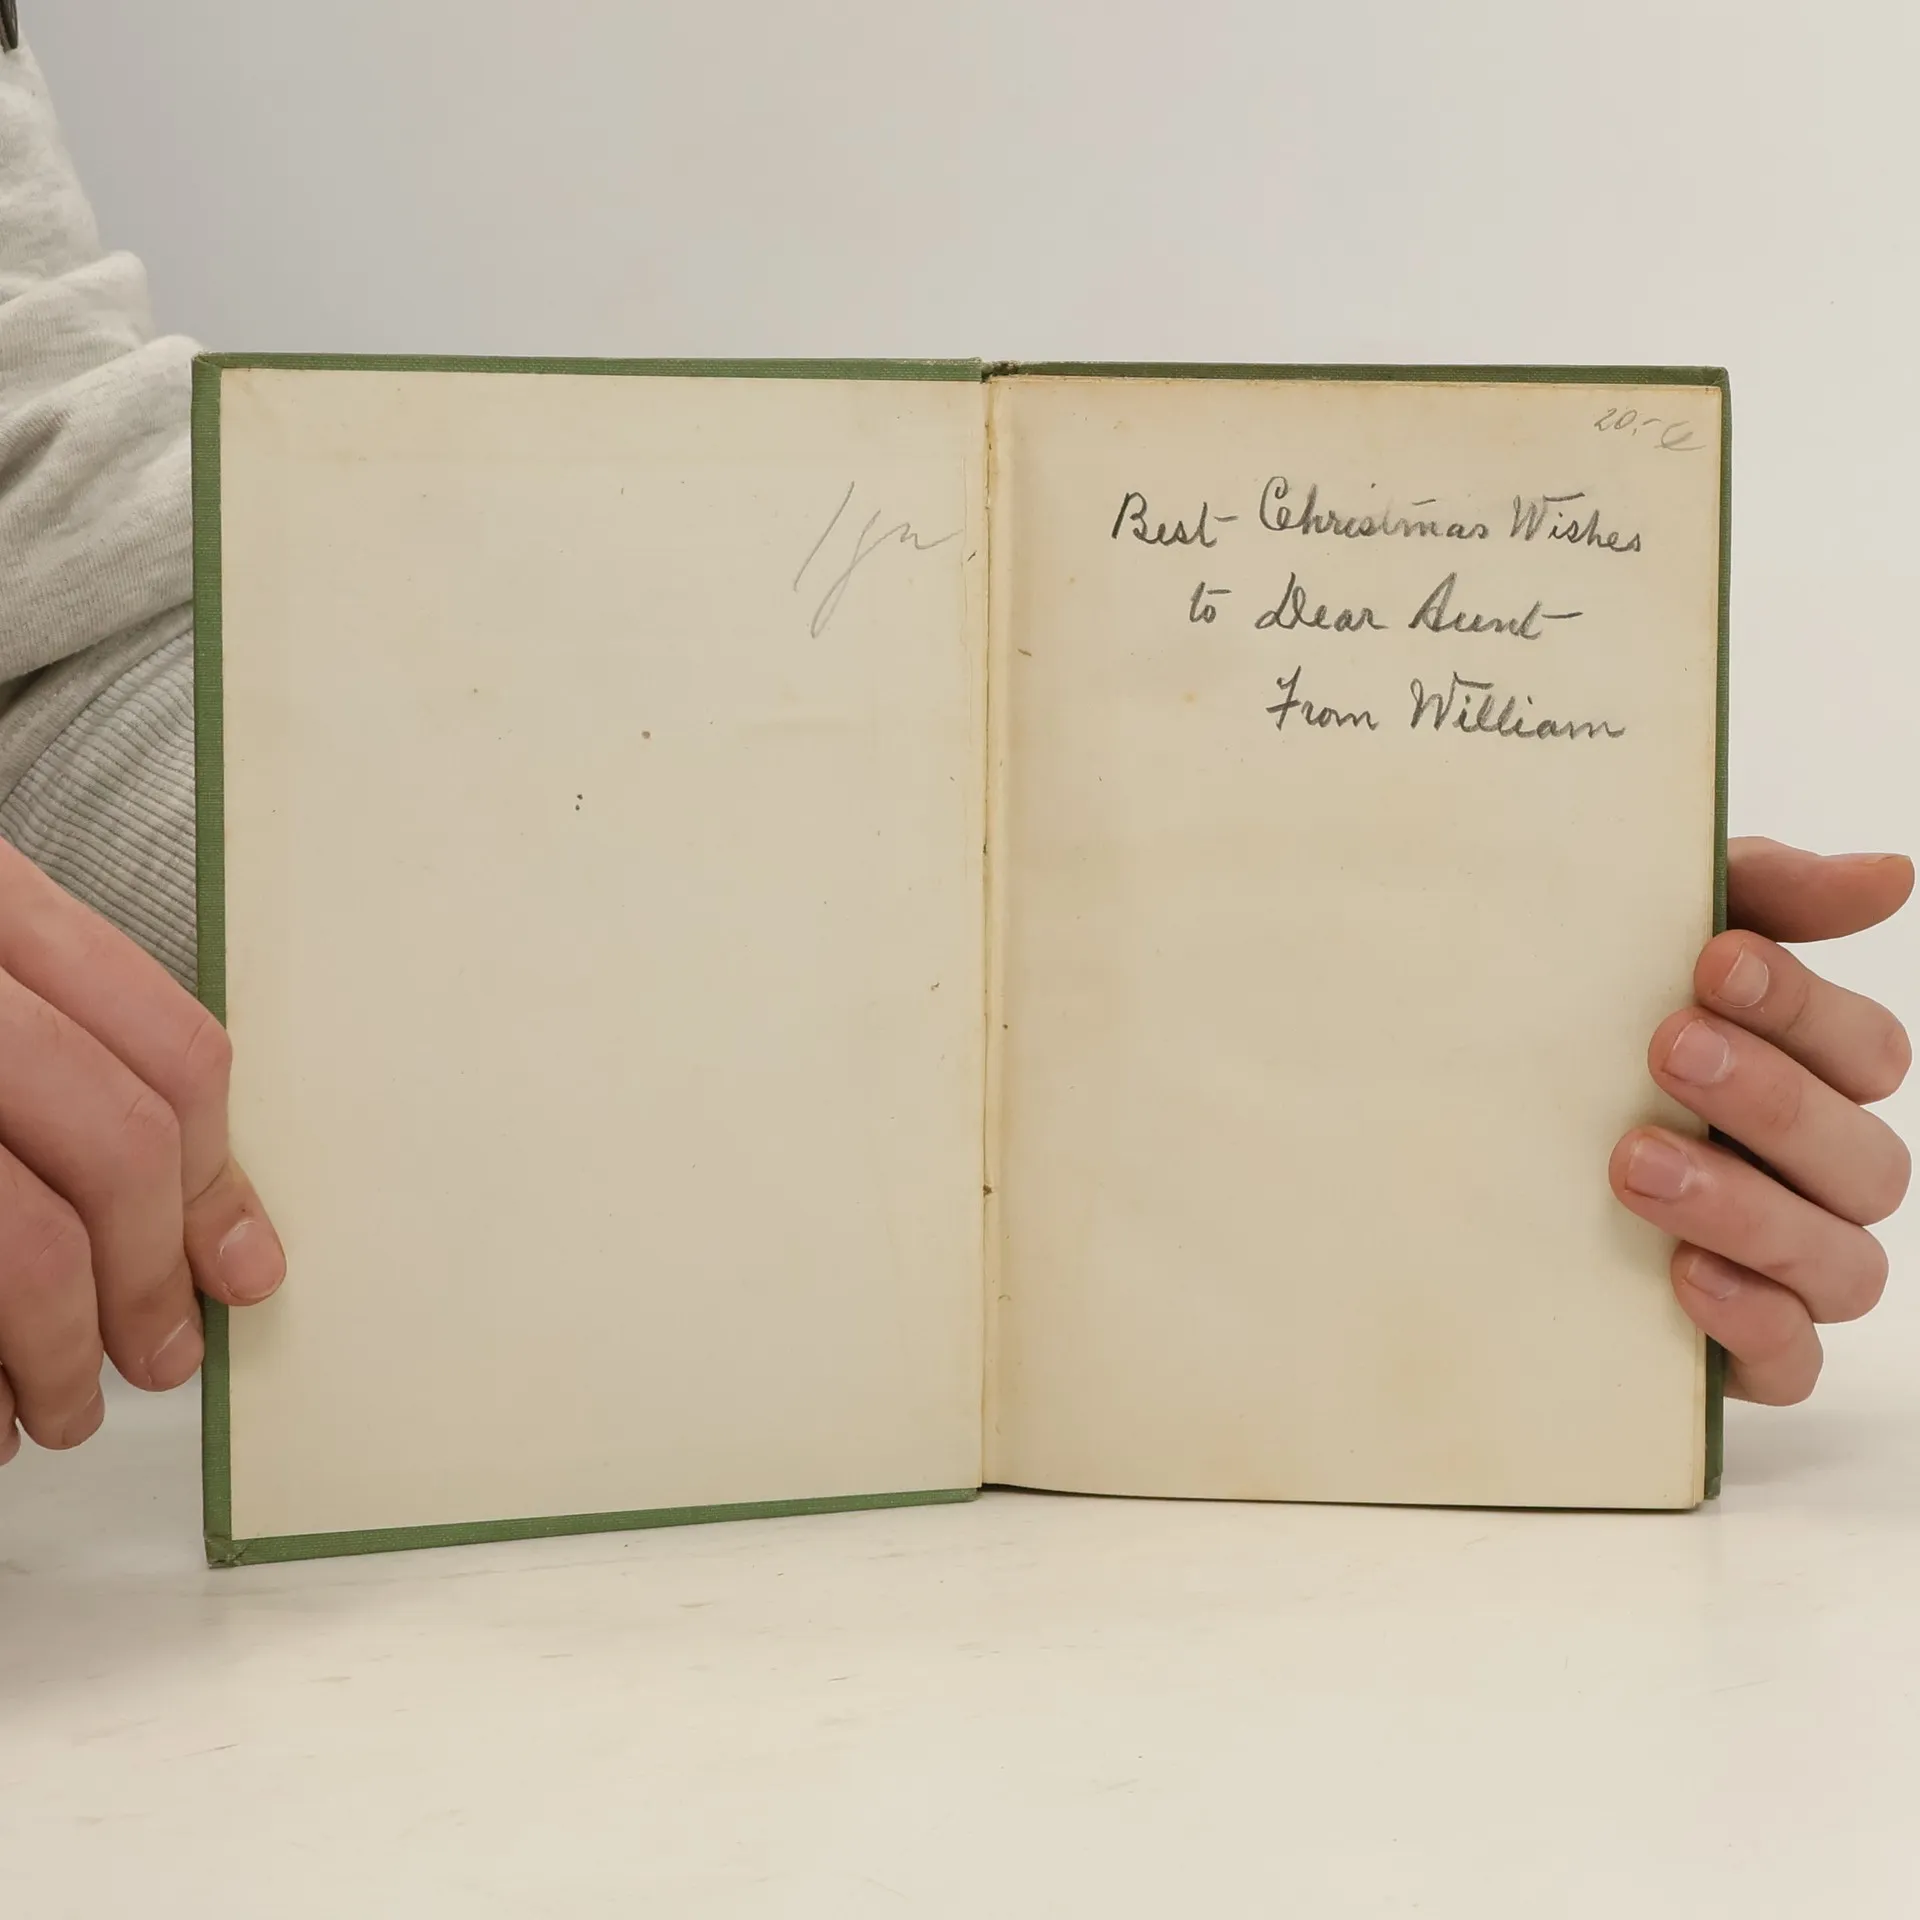 20,- €
Best Christmas Wishes
to Dear Aunt
From William